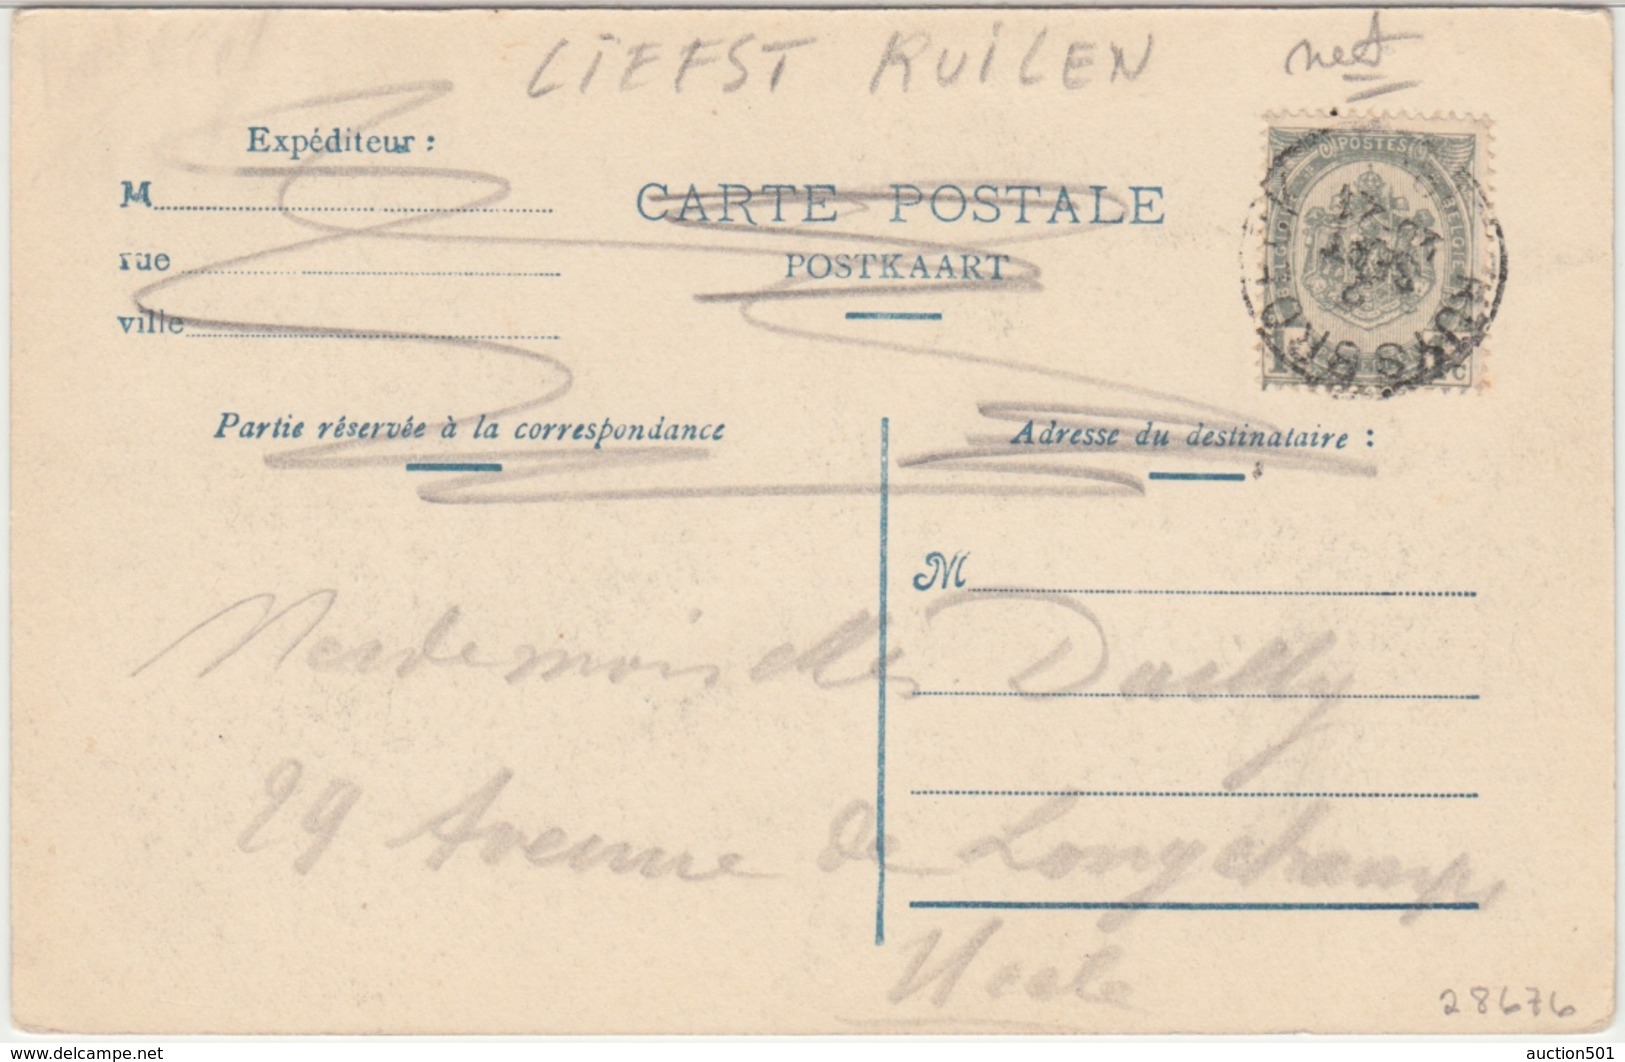 LIEFST RUILEN net
Expéditeur :
M
rue
ville
CARTE POSTALE
POSTKAART
POSTES
Partie réservée à la correspondance
Adresse du destinataire :
M
Mesdemoiselles Dailly
29 Avenue de Longchamps
Uccle
28676
http://www.delcampe.net
auction501